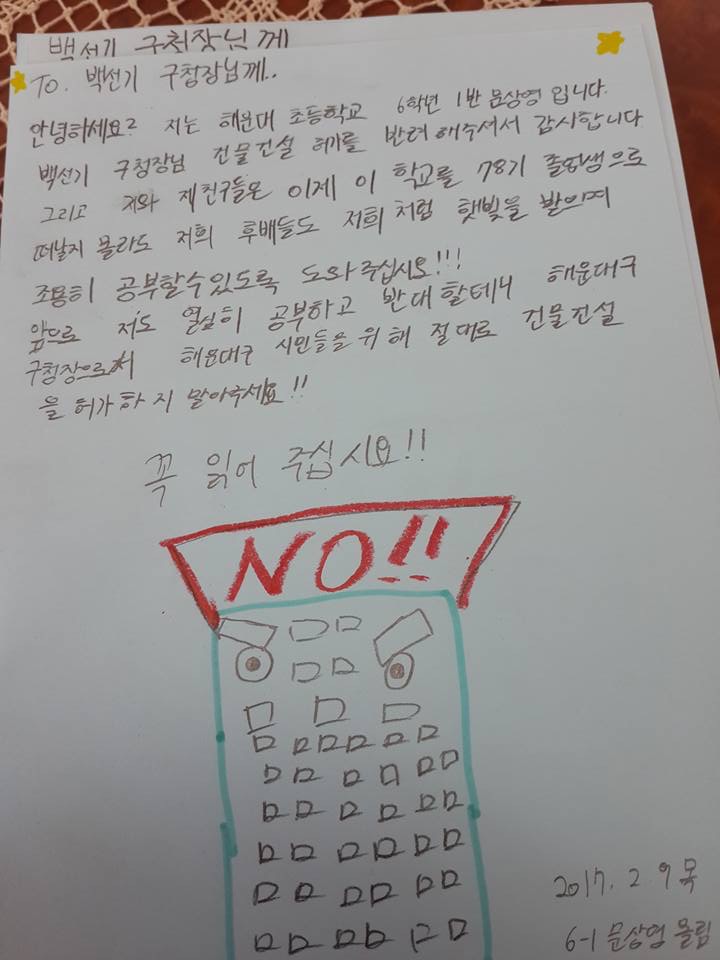 백선기 구청장님께
To. 백선기 구청장님께..
안녕하세요? 저는 해운대 초등학교 6학년 1반 문상영 입니다.
백선기 구청장님 건물건설 허가를 반려해주셔서 감사합니다
그리고 저와 제친구들은 이제 이 학교를 78기 졸업생으로
떠날지 몰라도 저희 후배들도 저희처럼 햇빛을 받으며
조용히 공부할수있도록 도와주십시요!!!
앞으로 저도 열심히 공부하고 반대할테니 해운대구
구청장으로써 해운대구 시민들을 위해 절대로 건물건설
을 허가하지 말아주세요!!
꼭 읽어 주십시요!!
NO!!
2017. 2. 9 목
6-1 문상영 올림